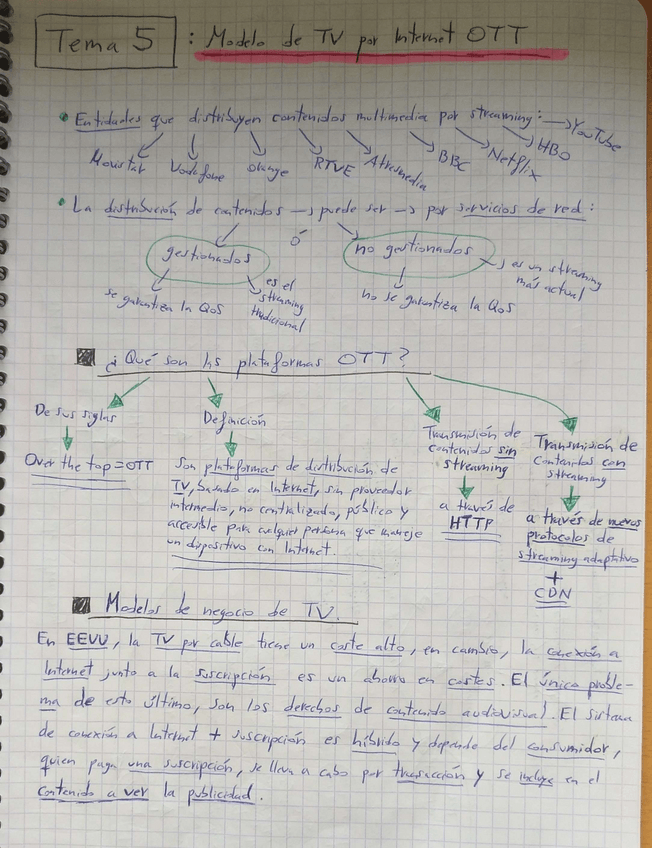 Tema 5 : Modelo de TV por Internet OTT
• Entidades que distribuyen contenidos multimedia por streaming: → YouTube
Movistar Vodafone Orange RTVE Atresmedia BBC Netflix HBO
• La distribución de contenidos → puede ser → por servicios de red:
gestionados ó no gestionados
se garantiza la QoS
es el
streaming
tradicional
no se garantiza la QoS
es un streaming
más actual
¿Qué son las plataformas OTT?
De sus siglas
Over the top = OTT
Definición
Son plataformas de distribución de
TV, basado en Internet, sin proveedor
intermedio, no centralizado, público y
accesible para cualquier persona que maneje
un dispositivo con Internet.
Transmisión de
contenidos sin
streaming
a través de
HTTP
Transmisión de
contenidos con
streaming
a través de nuevos
protocolos de
streaming adaptativo
+
CDN
Modelos de negocio de TV.
En EEUU, la TV por cable tiene un coste alto, en cambio, la conexión a
Internet junto a la suscripción es un ahorro en costes. El único proble-
ma de esto último, son los derechos de contenido audiovisual. El sistema
de conexión a Internet + suscripción es híbrido y depende del consumidor,
quien paga una suscripción, se lleva a cabo por transacción y se incluye en el
contenido a ver la publicidad.